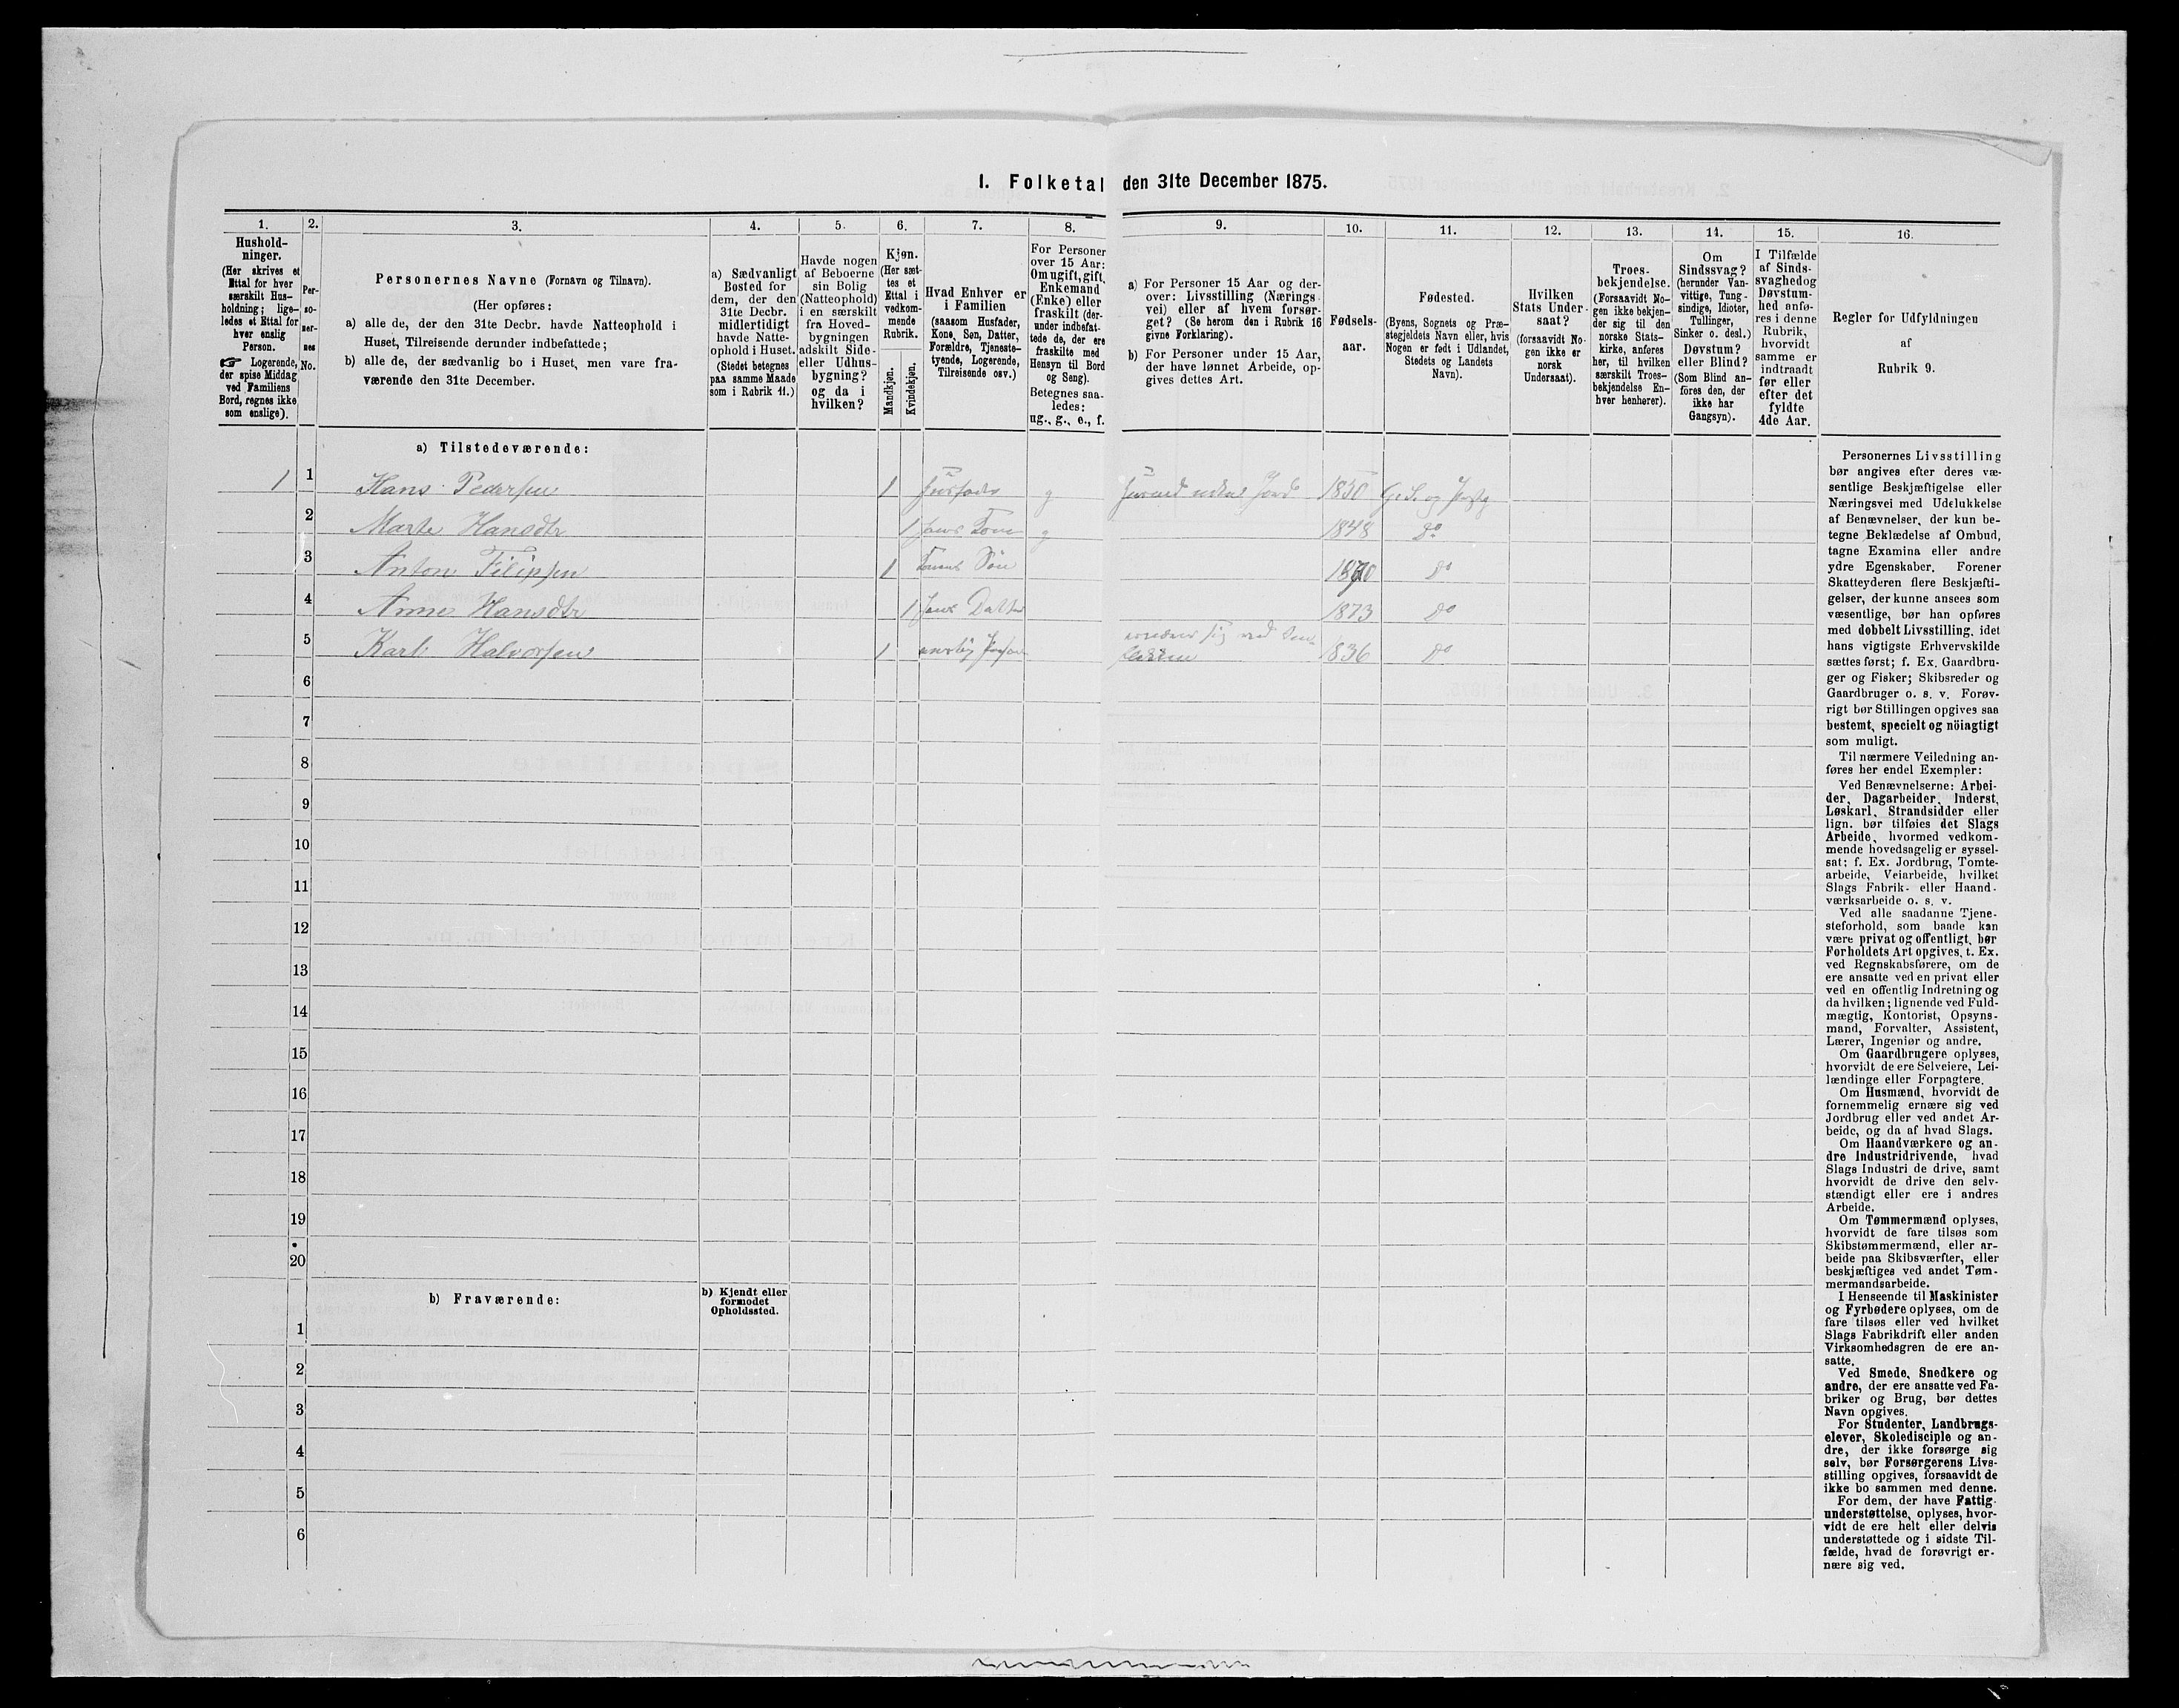 I. Folketal den 31te December 1875.
1.
Hushold-
ninger.
(Her skrives et
Ettal for hver
særskilt Hus-
holdning; lige-
ledes et Ettal for
hver enslig
Person.
☞ Logerende,
der spise Middag
ved Familiens
Bord, regnes ikke
som enslige).
2.
Per-
so-
ner-
nes
No.
3.
Personernes Navne (Fornavn og Tilnavn).
(Her opføres:
a) alle de, der den 31te Decbr. havde Natteophold i
Huset, Tilreisende derunder indbefattede;
b) alle de, der sædvanlig bo i Huset, men vare fra-
værende den 31te December.
4.
a) Sædvanligt
Bosted for
dem, der den
31te Decbr.
midlertidigt
havde Natte-
ophold i Huset.
(Stedet betegnes
paa samme Maade
som i Rubrik 11.)
5.
Havde nogen
af Beboerne
sin Bolig
(Natteophold)
i en særskilt
fra Hoved-
bygningen
adskilt Side-
eller Udhus-
bygning?
og da i
hvilken?
6.
Kjøn.
(Her sæt-
tes et
Ettal i
vedkom-
mende
Rubrik.
Mandkjøn.
Kvindekjøn.
7.
Hvad Enhver er
i Familien
(saasom Husfader,
Kone, Søn, Datter,
Forældre, Tjeneste-
tyende, Logerende,
Tilreisende osv.)
8.
For Personer
over 15 Aar:
Om ugift, gift,
Enkemand
(Enke) eller
fraskilt (der-
under indbefat-
tede de, der ere
fraskilte med
Hensyn til Bord
og Seng).
Betegnes saa-
ledes:
ug., g., e., f.
9.
a) For Personer 15 Aar og der-
over: Livsstilling (Nærings-
vei) eller af hvem forsør-
get? (Se herom den i Rubrik 16
givne Forklaring).
b) For Personer under 15 Aar,
der have lønnet Arbeide, op-
gives dettes Art.
10.
Fødsels-
aar.
11.
Fødested.
(Byens, Sognets og Præ-
stegjeldets Navn eller, hvis
Nogen er født i Udlandet,
Stedets og Landets
Navn).
12.
Hvilken
Stats Under-
saat?
(forsaavidt No-
gen ikke er
norsk
Undersaat).
13.
Troes-
bekjendelse.
(Forsaavidt No-
gen ikke bekjen-
der sig til den
norske Stats-
kirke, anføres
her, til hvilken
særskilt Troes-
bekjendelse En-
hver henhører).
14.
Om
Sindssvag?
(herunder Van-
vittige, Tung-
sindige, Idioter,
Tullinger,
Sinker o. desl.)
Døvstum?
eller Blind?
(Som Blind an-
føres den, der
ikke har
Gangsyn).
15.
I Tilfælde
af Sinds-
svaghed og
Døvstum-
hed anfø-
res i denne
Rubrik,
hvorvidt
samme er
indtraadt
før eller
efter det
fyldte
4de Aar.
16.
Regler for Udfyldningen
af
Rubrik 9.
a) Tilstedeværende:
1 1 Hans Pedersen 1 Husfader g Husmand uden Jord 1850
2 Marte Hansdtr 1 hans Kone g 1848 do
3 Anton Filipsen 1 Konens Søn 1870 do
4 Anne Hansdtr 1 hans Datter 1873 do
5 Karl Halvorsen 1 enslig Person ernærer sig ved 1836 do
6
7
8
9
10
11
12
13
14
15
16
17
18
19
20
b) Fraværende:
b) Kjendt eller
formodet
Opholdssted.
1
2
3
4
5
6
Personernes Livsstilling
bør angives efter deres væ-
sentlige Beskjæftigelse eller
Næringsvei med Udelukkelse
af Benævnelser, der kun be-
tegne Beklædelse af Ombud,
tagne Examina eller andre
ydre Egenskaber. Forener
Skatteyderen flere Beskjæfti-
gelser, der kunne ansees som
væsentlige, bør han opføres
med dobbelt Livsstilling, idet
hans vigtigste Erhvervskilde
sættes først; f. Ex. Gaardbru-
ger og Fisker; Skibsreder og
Gaardbruger o. s. v. Forøv-
rigt bør Stillingen opgives saa
bestemt, specielt og nöiagtigt
som muligt.
Til nærmere Veiledning an-
føres her endel Exempler:
Ved Benævnelserne: Arbei-
der, Dagarbeider, Inderst,
Løskarl, Strandsidder eller
lign. bør tilføies det Slags
Arbeide, hvormed vedkom-
mende hovedsagelig er syssel-
sat; f. Ex. Jordbrug, Tomte-
arbeide, Veiarbeide, hvilket
Slags Fabrik- eller Haand-
værksarbeide o. s. v.
Ved alle saadanne Tjene-
steforhold, som baade kan
være privat og offentligt, bør
Forholdets Art opgives, t. Ex.
ved Regnskabsførere, om de
ere ansatte ved en privat eller
ved en offentlig Indretning og
da hvilken; lignende ved Fuld-
mægtig, Kontorist, Opsyns-
mand, Forvalter, Assistent,
Lærer, Ingeniør og andre.
Om Gaardbrugere oplyses,
hvorvidt de ere Selveiere, Lei-
lændinge eller Forpagtere.
Om Husmænd, hvorvidt de
fornemmelig ernære sig ved
Jordbrug eller ved andet Ar-
beide, og da af hvad Slags.
Om Haandværkere og an-
dre Industridrivende, hvad
Slags Industri de drive, samt
hvorvidt de drive den selv-
stændigt eller ere i andres
Arbeide.
Om Tømmermænd oplyses,
hvorvidt de fare tilsøs som
Skibstømmermænd, eller ar-
beide paa Skibsværfter, eller
beskjæftiges ved andet Tøm-
mermandsarbeide.
I Henseende til Maskinister
og Fyrbødere oplyses, om de
fare tilsøs eller ved hvilket
Slags Fabrikdrift eller anden
Virksomhedsgren de ere an-
satte.
Ved Smede, Snedkere og
andre, der ere ansatte ved Fa-
briker og Brug, bør dettes
Navn opgives.
For Studenter, Landbrugs-
elever, Skoledisciple og an-
dre, der ikke forsørge sig
selv, bør Forsørgerens Livs-
stilling opgives, forsaavidt de
ikke bo sammen med denne.
For dem, der have Fattig-
understøttelse, oplyses, hvor-
vidt de ere helt eller delvis
understøttede og i sidste Til-
fælde, hvad de forøvrigt er-
nære sig ved.